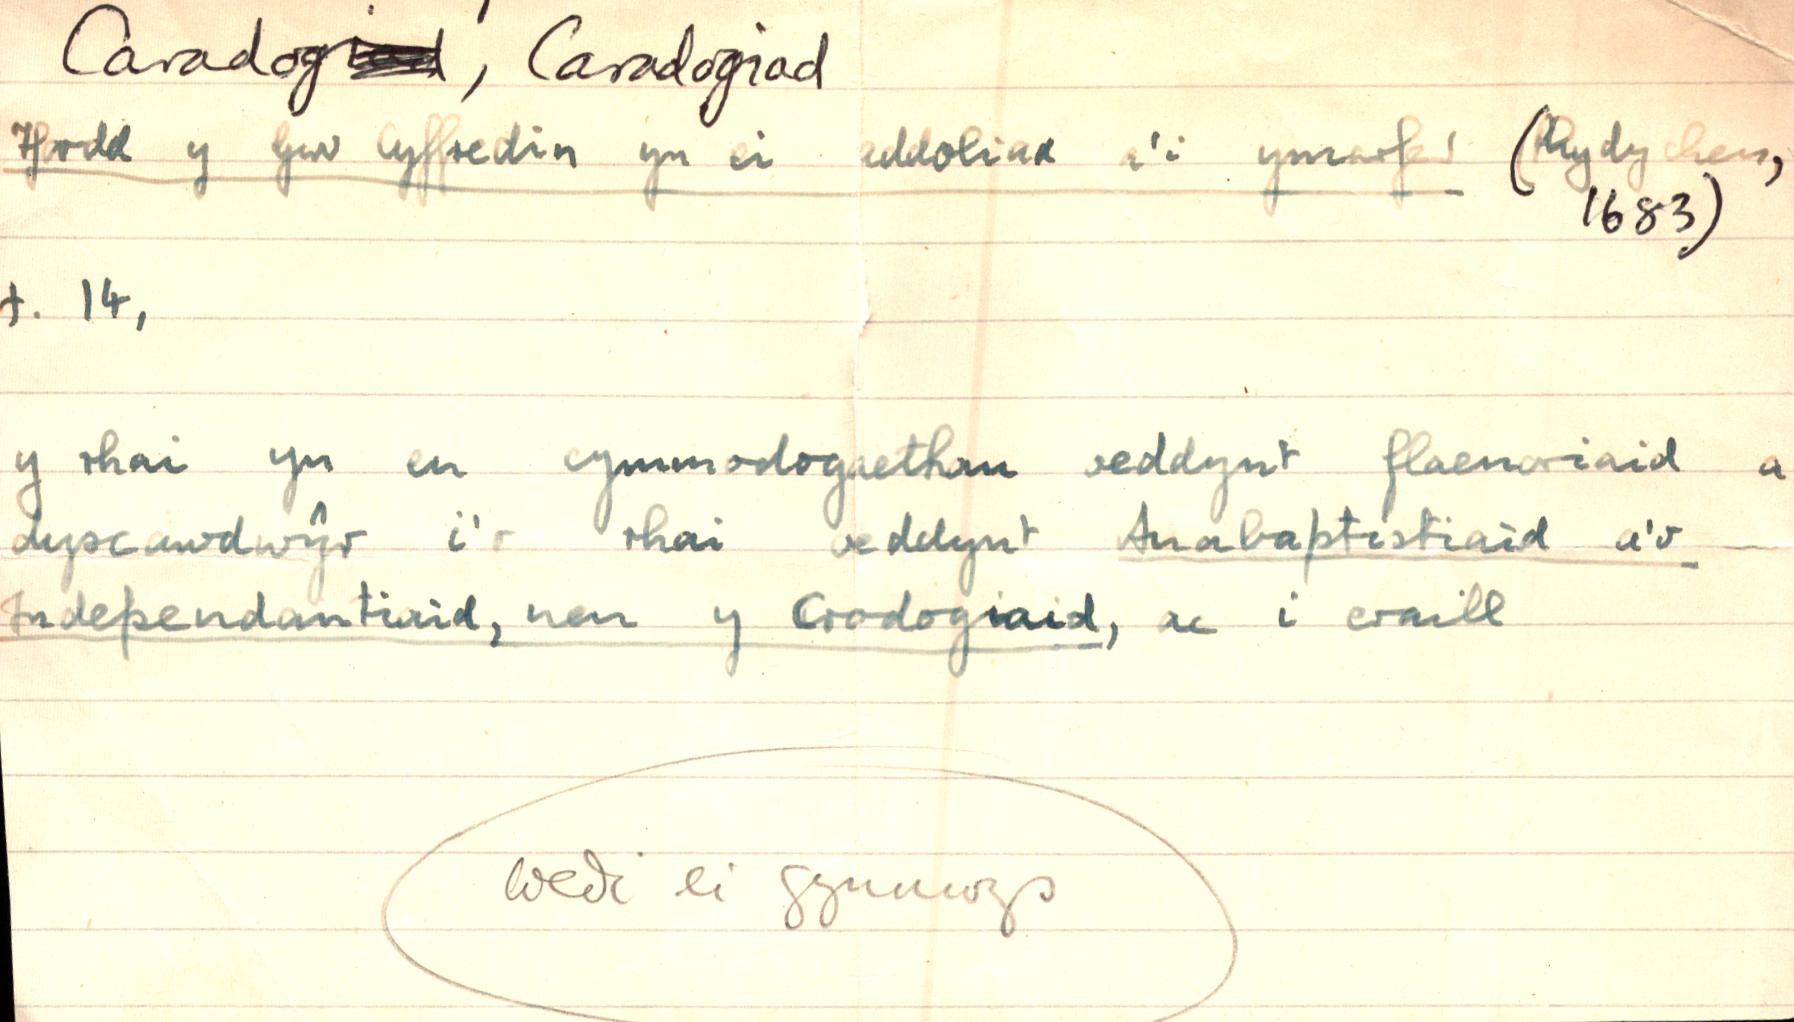 Caradog, Caradogiad
Ffordd y Gwr Cyffredin yn ei addoliad a'i ymarfer (Rhydychen,
1683)
t. 14,
y rhai yn eu cymmodogaethau oeddynt flaenoriaid a
dyscawdwŷr i'r rhai oeddynt Anabaptistiaid a'r
Independantiaid, neu y Crodogiaid, ac i eraill
wedi ei gynnwys